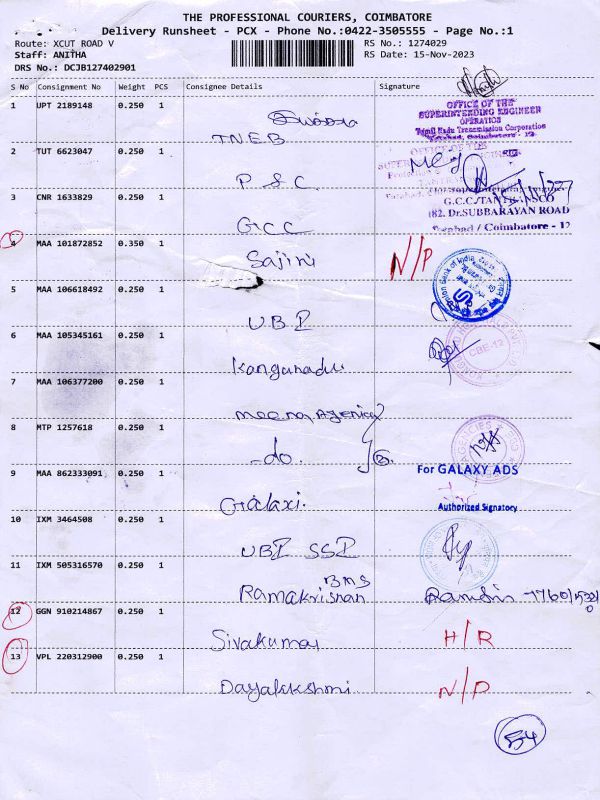 THE PROFESSIONAL COURIERS, COIMBATORE
Delivery Runsheet - PCX - Phone No.:0422-3505555 - Page No.:1
Route: XCUT ROAD V RS No.: 1274029
Staff: ANITHA RS Date: 15-Nov-2023
DRS No.: DCJB127402901
S No Consignment No Weight PCS Consignee Details Signature
1 UPT 2189148 0.250 1
OFFICE OF THE
SUPERINTENDING ENGINEER
OPERATION
Tamil Nadu Transmission Corporation
TNEB
2 TUT 6623047 0.250 1
OFFICE OF THE
PSC
3 CNR 1633829 0.250 1
G.C.C/TANTRANSCO
182. Dr.SUBBARAYAN ROAD
Tatabad / Coimbatore - 12
GCC
4 MAA 101872852 0.350 1
Sajini N/P
5 MAA 106618492 0.250 1
Union Bank of India
UBI
6 MAA 105345161 0.250 1
CBE-12
Kanganadu
7 MAA 106377200 0.250 1
meera Agencies
8 MTP 1257618 0.250 1
AGENCIES
-do-
9 MAA 862333091 0.250 1
For GALAXY ADS
Galaxi.
Authorized Signatory
10 IXM 3464508 0.250 1
UBI SSI
11 IXM 505316570 0.250 1
BMS
Ramakrishnan
12 GGN 910214867 0.250 1
Sivakumar H/R
13 VPL 220312900 0.250 1
Dayalakshmi N/P
54